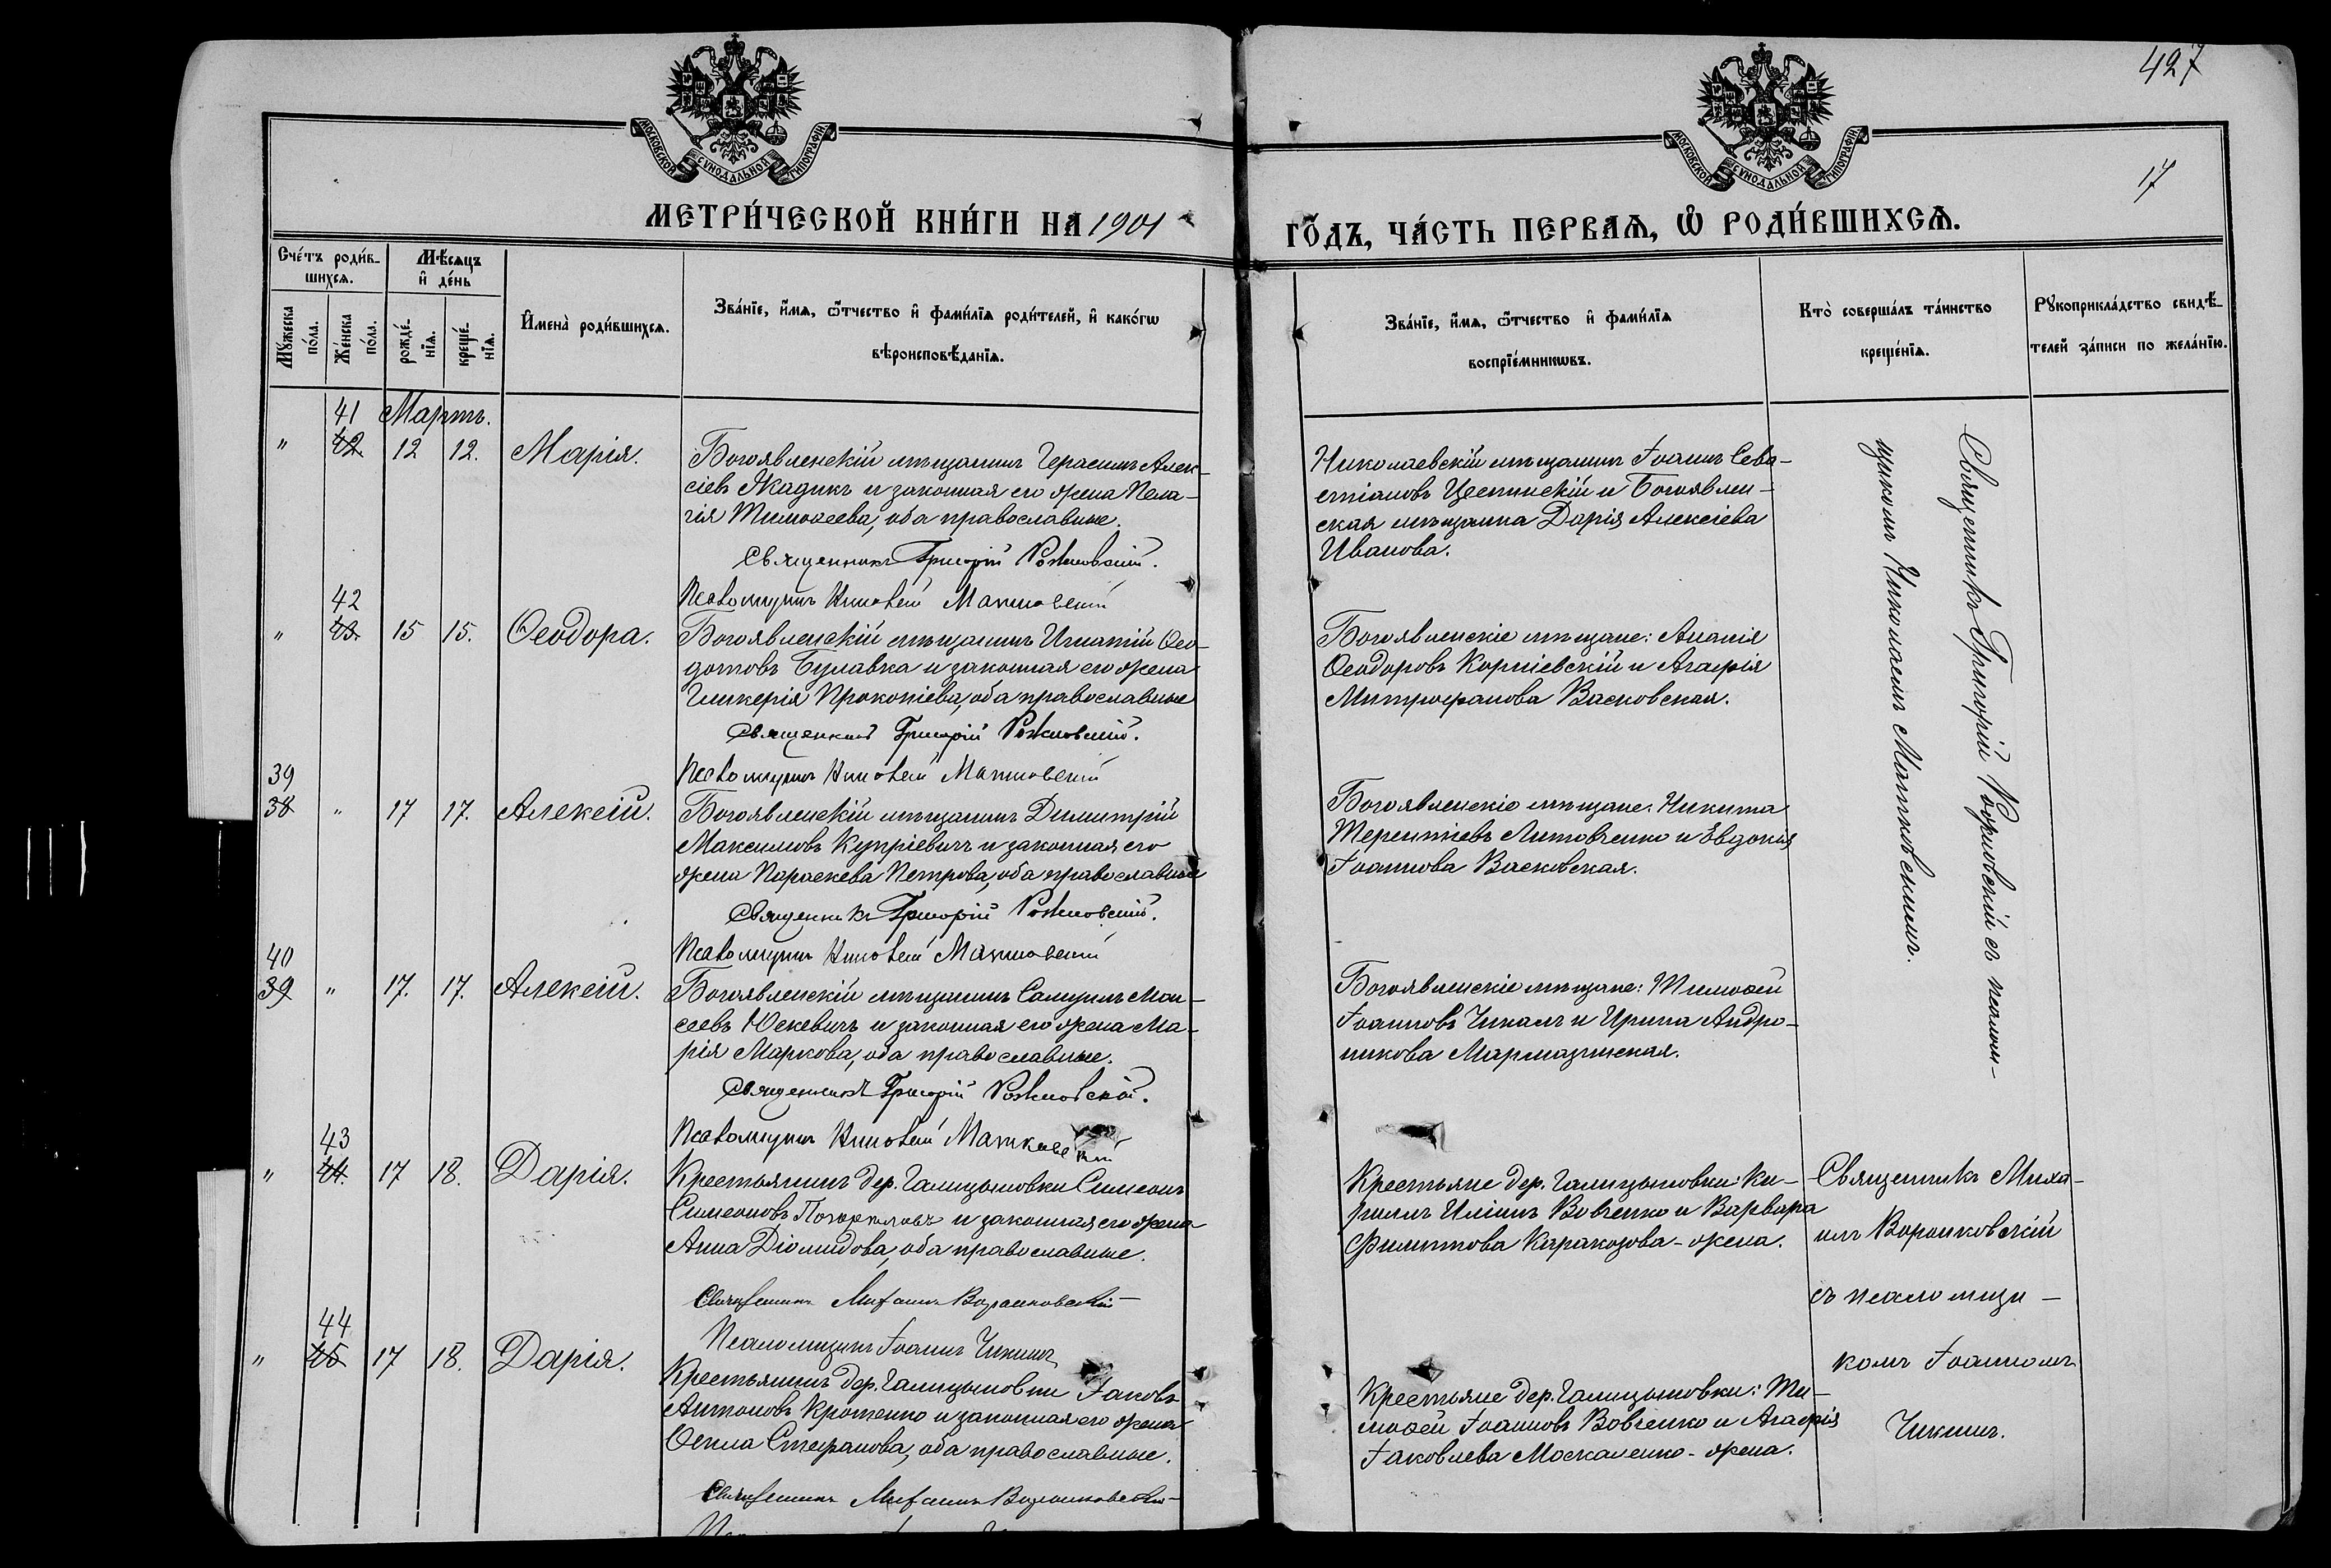 427
17
МОСКОВСКОЙ СѴНОДАЛЬНОЙ ТИПОГРАФІИ
МОСКОВСКОЙ СѴНОДАЛЬНОЙ ТИПОГРАФІИ
МЕТРИ́ЧЕСКОЙ КНИ́ГИ НА 1901
ГО́ДЪ, ЧА́СТЬ ПЕРВАѦ, Ѡ҆ РОДИ́ВШИХСѦ.
Сче́тъ роди́в-
шихсѧ.
Мꙋ́жеска по́ла.
Же́нска по́ла.
Мѣ́сяцъ
и҆ де́нь
рожде́нїѧ.
креще́нїѧ.
И҆мена̀ роди́вшихсѧ.
Зва́нїе, и҆́мѧ, ѻ҆́тчество и҆ фами́лїѧ роди́телей, и҆ како́гѡ
вѣроисповѣ́данїѧ.
Зва́нїе, и҆́мѧ, ѻ҆́тчество и҆ фами́лїѧ
воспрїе́мникѡвъ.
Кто̀ соверша́лъ та́инство
креще́нїѧ.
Рꙋкоприкла́дство свидѣ́-
телей за́писи по жела́нїю.
Мартъ.
" 41 42 12 12. Марія.
Богоявленскій мѣщанинъ Герасимъ Алек-
сіевъ Жадикъ и законная его жена Пела-
гія Тимоѳеева, оба православные.
Священникъ Григорій Рожновскій.
Псаломщикъ Николай Матковскій
Николаевскій мѣщанинъ Іоаннъ Сева-
стіановъ Цеспинскій и Богоявлен-
ская мѣщанка Дарія Алексіева
Иванова.
" 42 43 15 15. Ѳеодора.
Богоявленскій мѣщанинъ Игнатій Ѳео-
дотовъ Булавка и законная его жена
Гликерія Прокопіева, оба православные
Священникъ Григорій Рожновскій.
Псаломщикъ Николай Матковскій
Богоявленскіе мѣщане: Ананія
Ѳеодоровъ Корніевскій и Агафія
Митрофанова Васковская.
39 38 " 17 17. Алексій.
Богоявленскій мѣщанинъ Димитрій
Максимовъ Купріевичъ и законная его
жена Параскева Петрова, оба православные
Священникъ Григорій Рожновскій.
Псаломщикъ Николай Матковскій
Богоявленскіе мѣщане: Никита
Терентіевъ Литовченко и Евдокія
Іоаннова Васковская.
Священникъ Григорій Рожновскій съ псалом-
щикомъ Николаемъ Матковскимъ.
40 39 " 17. 17. Алексій.
Богоявленскій мѣщанинъ Самуилъ Мои-
сеевъ Юскевичъ и законная его жена Ма-
рія Маркова, оба православные.
Священникъ Григорій Рожновскій.
Псаломщикъ Николай Матковскій
Богоявленскіе мѣщане: Тимоѳей
Іоанновъ Чикалъ и Ирина Андро-
никова Мармазинская.
" 43 44. 17 18. Дарія.
Крестьянинъ дер. Галицыновки Симеонъ
Симеоновъ и законная его жена
Анна Діомидова, оба православные.
Священникъ Михаилъ Воронковскій
Псаломщикъ Іоаннъ Чикинъ
Крестьяне дер. Галицыновки: Ки-
риллъ Иліинъ Вовченко и Варвара
Филиппова Каракозова-жена.
Священникъ Миха-
илъ Воронковскій
съ псаломщи-
комъ Іоанномъ
Чикинъ.
" 44 45 17 18. Дарія.
Крестьянинъ дер. Галицыновки Іаковъ
Антоновъ Кротенко и законная его жена
Ѳекла Стефанова, оба православные.
Священникъ Михаилъ Воронковскій
Крестьяне дер. Галицыновки: Ти-
моѳей Іоанновъ Вовченко и Агафія
Іаковлева Москаленко-жена.